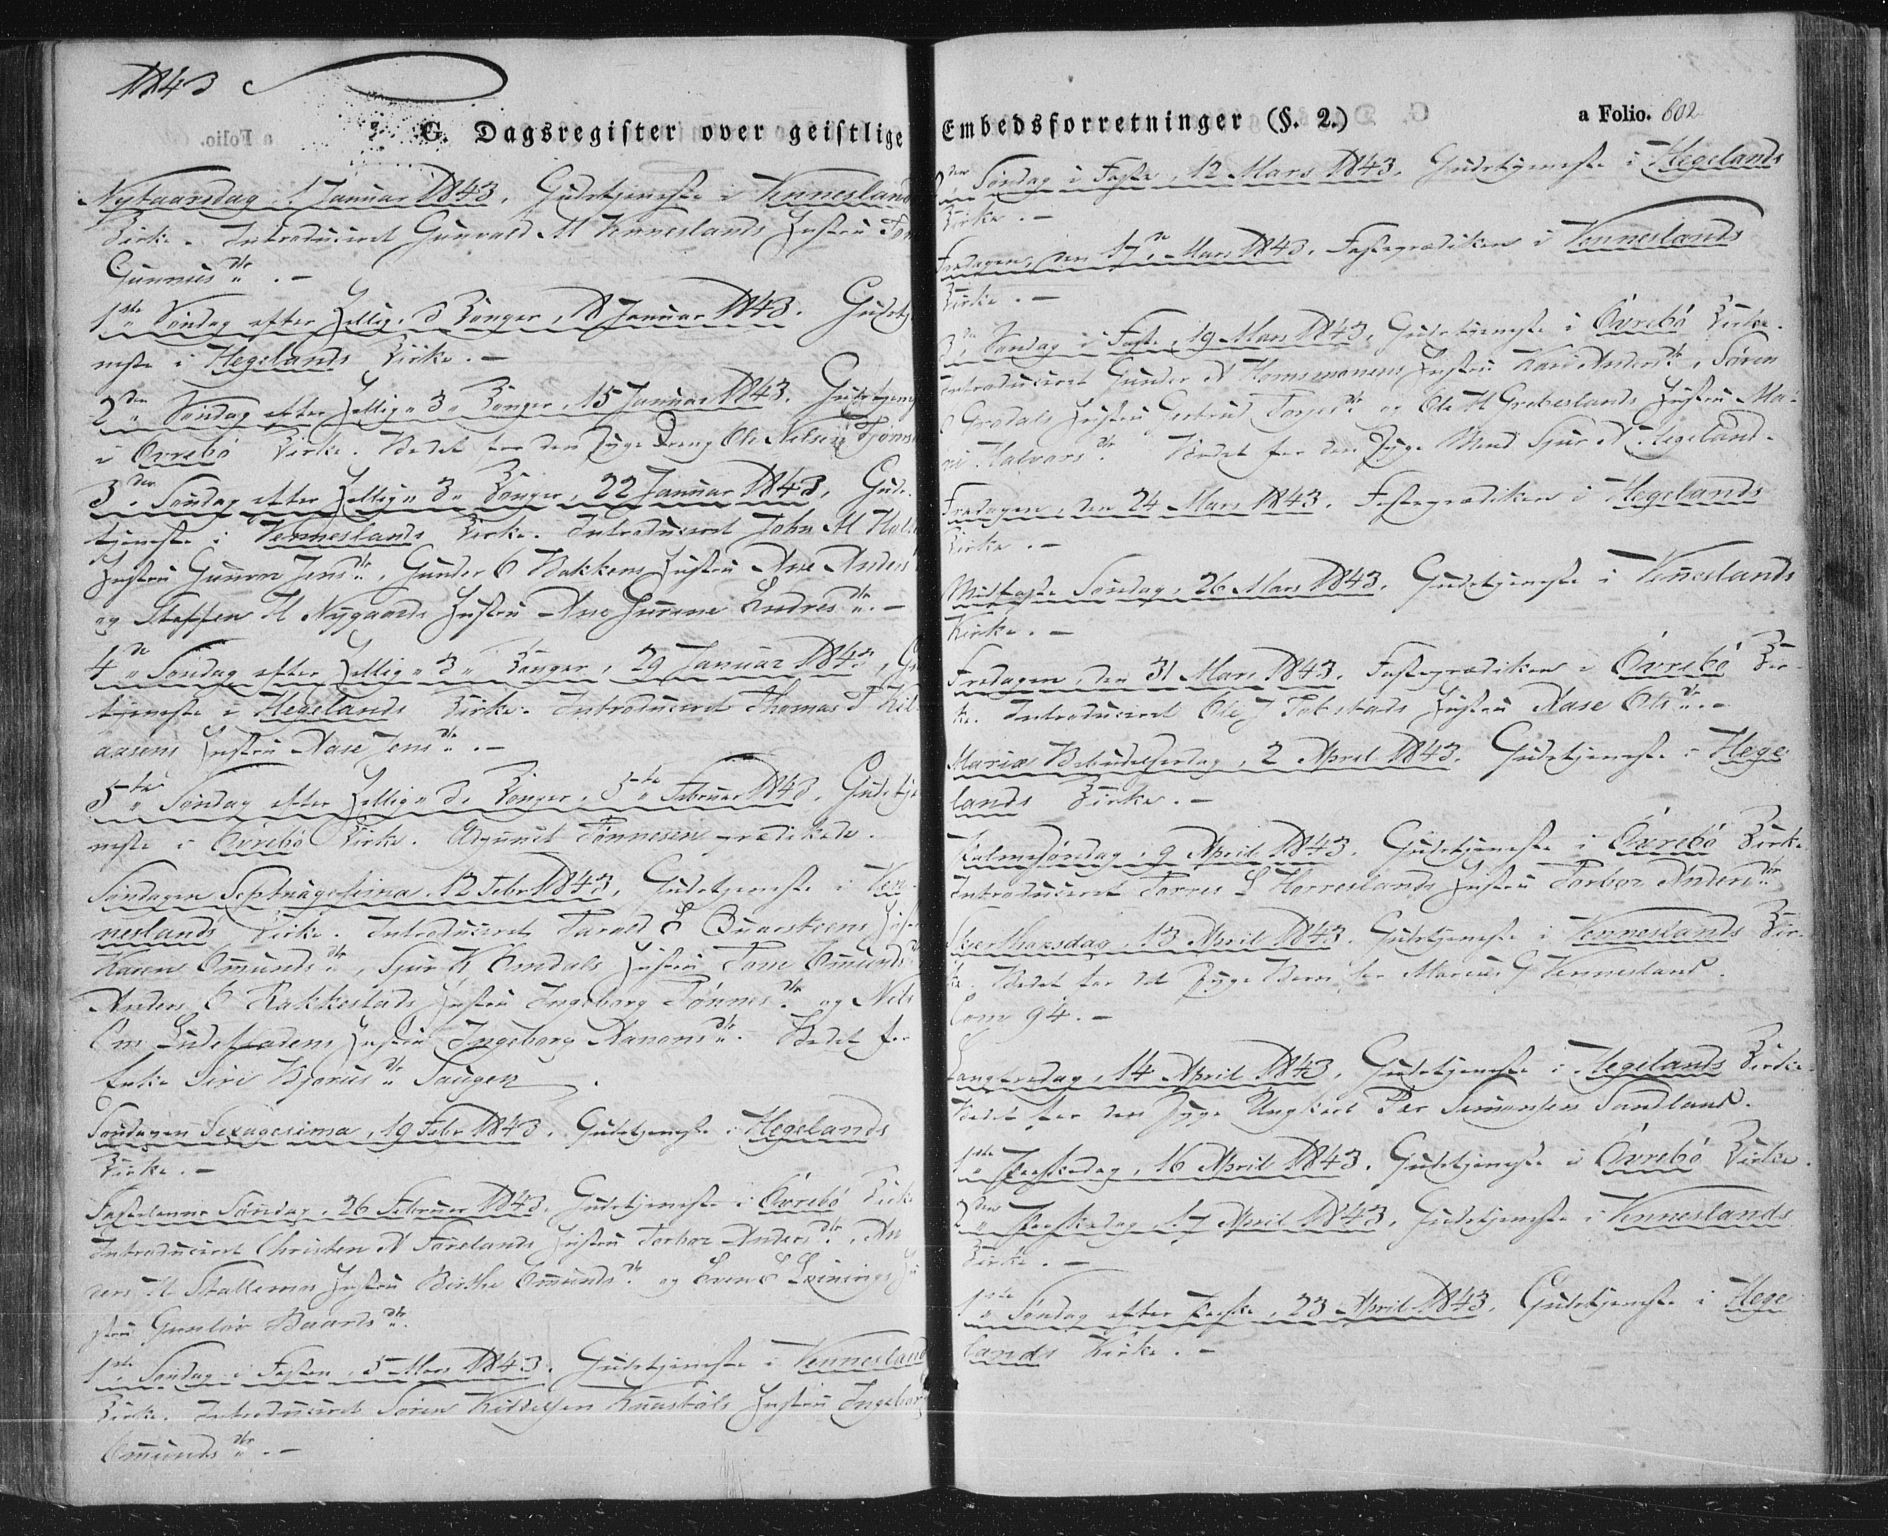 1843
G. Dagsregister over geistlige
Nytaarsdag, 1 Januar 1843, Gudstjeneste i Venneslands
Kirke. Introduceret Gunvald M Venneslands Hustru Tone
Gunnus dtr. –
1ste Søndag efter Hellig. 3 Konger, 8 Januar 1843. Gudstje
neste i Hegelands Kirke. –
2den Søndag efter Hellig. 3 Konger, 15 Januar 1843. Gudstjeneste
i Øvrebø Kirke. Bedet for den syge Dreng Ole Nilsen
3die Søndag efter Hellig. 3 Konger, 22 Januar 1843, Guds
tjeneste i Venneslands Kirke. Introduceret John M
Hustru Gunvor Jens dtr, Gunder O Bakkens Hustru Ane Anders
og Steffen H Nygaards Hustru Ane Gurine Endres dtr. –
4de Søndag efter Hellig. 3 Konger, 29 Januar 1843,
tjeneste i Hegelands Kirke. Introduceret Thomas T Kil
aasens Hustru Aase Jens dtr. –
5te Søndag efter Hellig. 3 Konger, 5te Februar 1843. Gudstje
neste i Øvrebø Kirke. Adjunct Tønnesen prædikede.
Søndagen Septuagesima, 12 Febr 1843, Gudstjeneste i Ven
neslands Kirke. Introduceret Tarald E Qvarsteens
Karen Omunds dtr, Sjur K Omdals Hustru Tone Omunds
Anders O Rakkestads Hustru Ingeborg Tønnes dtr og Nils
Hustru Ingeborg Aanons dtr. Bedet for
Enke Siri Bjørus dtr Saugen.
Søndagen Sexagesima, 19 Febr 1843, Gudstjeneste i Hegelands
Kirke. –
Fastelavns Søndag, 26 Februar 1843, Gudstjeneste i Øvrebø Kirke
Introduceret Christen N Førelands Hustru Torbor Anders dtr, An
ders H Stallemos Hustru Birthe Omunds dtr og Sven S Hu
stru Gunlør Baards dtr.
1ste Søndag i Fasten, 5 Mars 1843. Gudstjeneste i Vennesland
Kirke. Introduceret Søren Kittelsen Hustru Ingeborg
Omunds dtr. –
Embedsforretninger (§. 2.)
a Folio. 602
2den Søndag i Faste, 12 Mars 1843, Gudstjeneste i Hegelands
Kirke. –
Fredagen, den 17de Mars 1843, Fasteprædiken i Venneslands
Kirke. –
3die Søndag i Faste, 19 Mars 1843, Gudstjeneste i Øvrebø Kirke.
Introduceret Gunder N Homsmoens Hustru Kari Anders dtr, Søren
Hustru Gertrud Torjes dtr og Ole H Grebeslands Hustru Ma
ri Halvors dtr. Bedet for den syge Mand Sjur N Hegeland.
Fredagen, den 24 Mars 1843. Fasteprædiken i Hegelands
Kirke. –
Midfaste Søndag, 26 Mars 1843, Gudstjeneste i Venneslands
Kirke. –
Fredagen, den 31 Mars 1843, Fasteprædiken i Øvrebø Kir
ke. Introduceret Ole J Tobstads Hustru Aase Ols dtr. –
Mariæ Bebudelsesdag, 2 April 1843. Gudstjeneste i Hege
lands Kirke. –
Palmesøndag, 9 April 1843, Gudstjeneste i Øvrebø Kirke.
Introduceret Torres S Horreslands Hustru Torbor Anders dtr
Skjerthorsdag, 13 April 1843, Gudstjeneste i Venneslands Kir
ke. Bedet for det syge Barn Marcus G Vennesland.
Com 94. –
Langfredag, 14 April 1843, Gudstjeneste i Hegelands Kirke.
Bedet for den syge Ungkarl Per Simonsen Sandland.
1ste Paaskedag, 16 April 1843, Gudstjeneste i Øvrebø Kirke.
2den Paaskedag, 17 April 1843, Gudstjeneste i Venneslands
Kirke. –
1ste Søndag efter Paaske, 23 April 1843, Gudstjeneste i Hege
lands Kirke. –